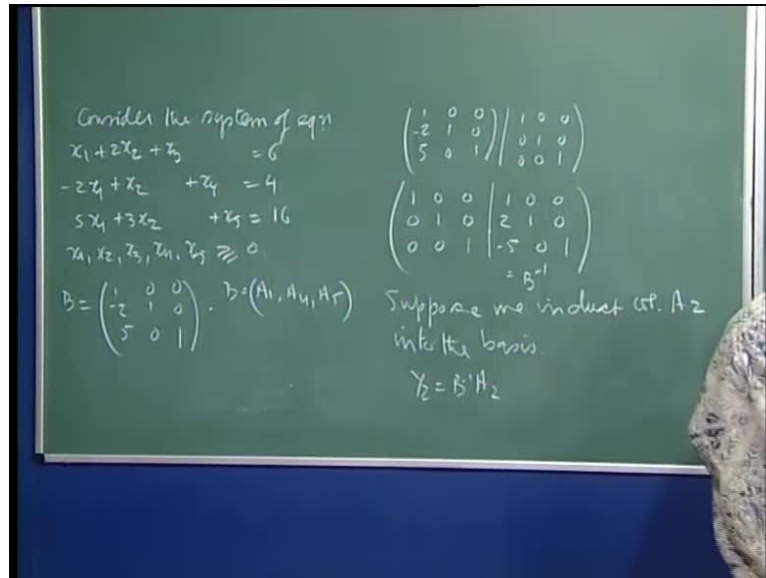 Consider the system of eqn
x₁ + 2x₂ + x₃ = 6
-2x₁ + x₂ + x₄ = 4
5x₁ + 3x₂ + x₅ = 16
x₁, x₂, x₃, x₄, x₅ ≥ 0
B = (1 0 0
-2 1 0
5 0 1). B = (A₁, A₄, A₅)
(1 0 0 | 1 0 0
-2 1 0 | 0 1 0
5 0 1 | 0 0 1)
(1 0 0 | 1 0 0
0 1 0 | 2 1 0
0 0 1 | -5 0 1)
= B⁻¹
Suppose we induct col. A₂
into the basis.
Y₂ = B⁻¹A₂